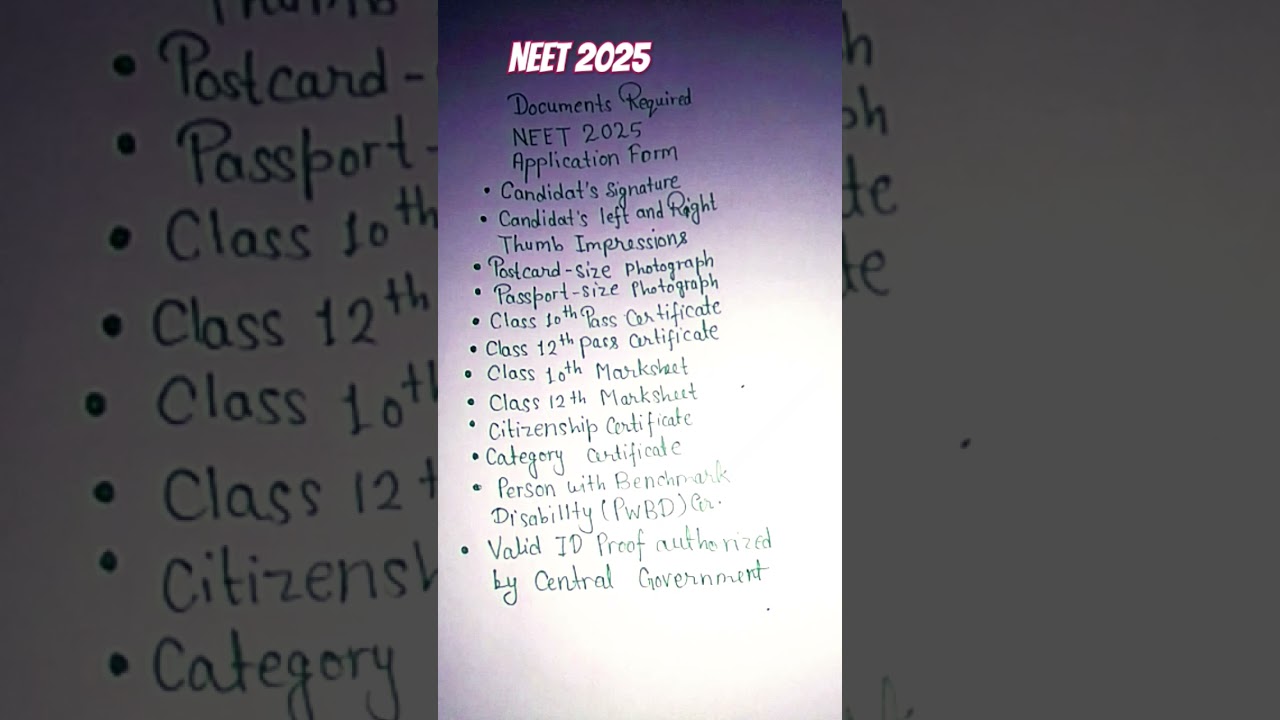 NEET 2025
Documents Required
NEET 2025
Application Form
• Candidat's Signature
• Candidat's left and Right
Thumb Impressions
• Postcard-size Photograph
• Passport-size Photograph
• Class 10th Pass Certificate
• Class 12th pass Certificate
• Class 10th Marksheet
• Class 12th Marksheet
• Citizenship Certificate
• Category Certificate
• Person with Benchmark
Disability (PWBD) Cer.
• Valid ID Proof authorized
by Central Government
• Postcard-
• Passport-
• Class 10th
• Class 12th
• Class 10th
• Class 12
• Category